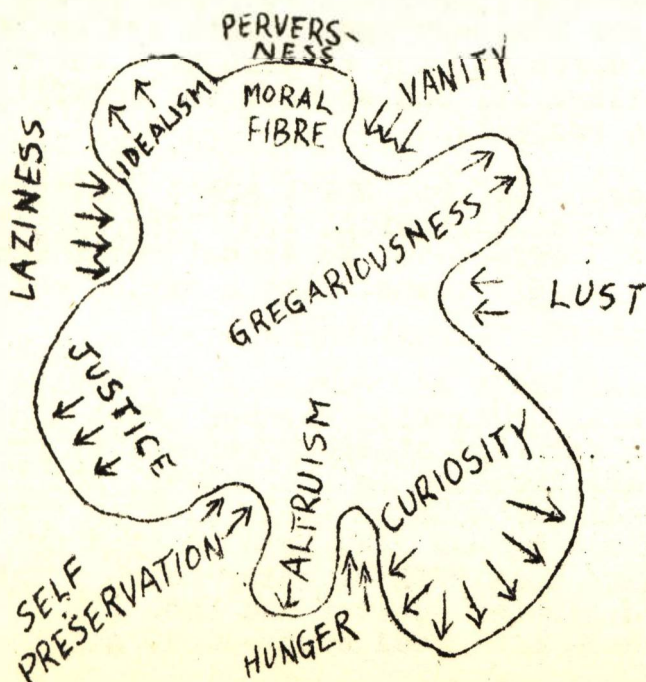 PERVERS-
NESS
MORAL
FIBRE
VANITY
IDEALISM
LAZINESS
GREGARIOUSNESS
LUST
JUSTICE
ALTRUISM
CURIOSITY
SELF
PRESERVATION
HUNGER